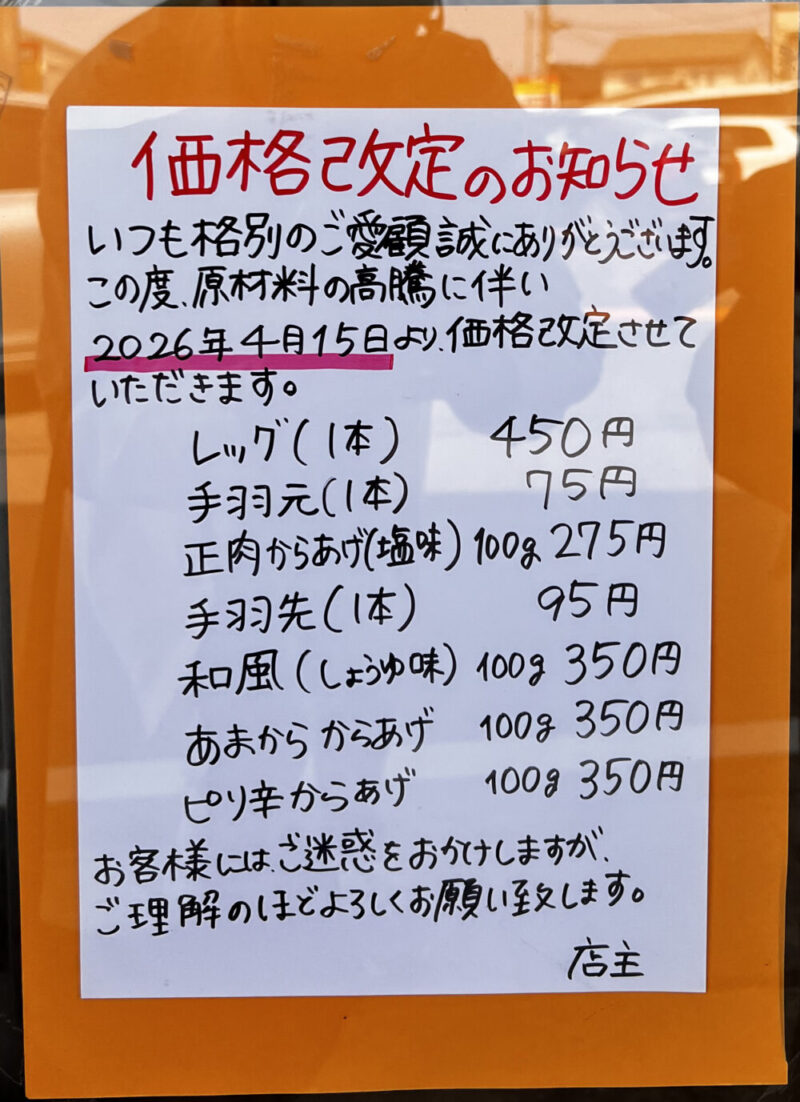 価格改定のお知らせ
いつも格別のご愛顧誠にありがとうございます。
この度、原材料の高騰に伴い
2026年4月15日より、価格改定させて
いただきます。
レッグ(1本) 450円
手羽元(1本) 75円
正肉からあげ(塩味) 100g 275円
手羽先(1本) 95円
和風(しょうゆ味) 100g 350円
あまからからあげ 100g 350円
ピリ辛からあげ 100g 350円
お客様には、ご迷惑をおかけしますが、
ご理解のほどよろしくお願い致します。
店主